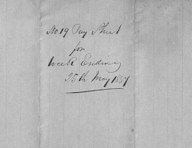 No 19 Pay Sheet
for
Week Ending
25th May 1857